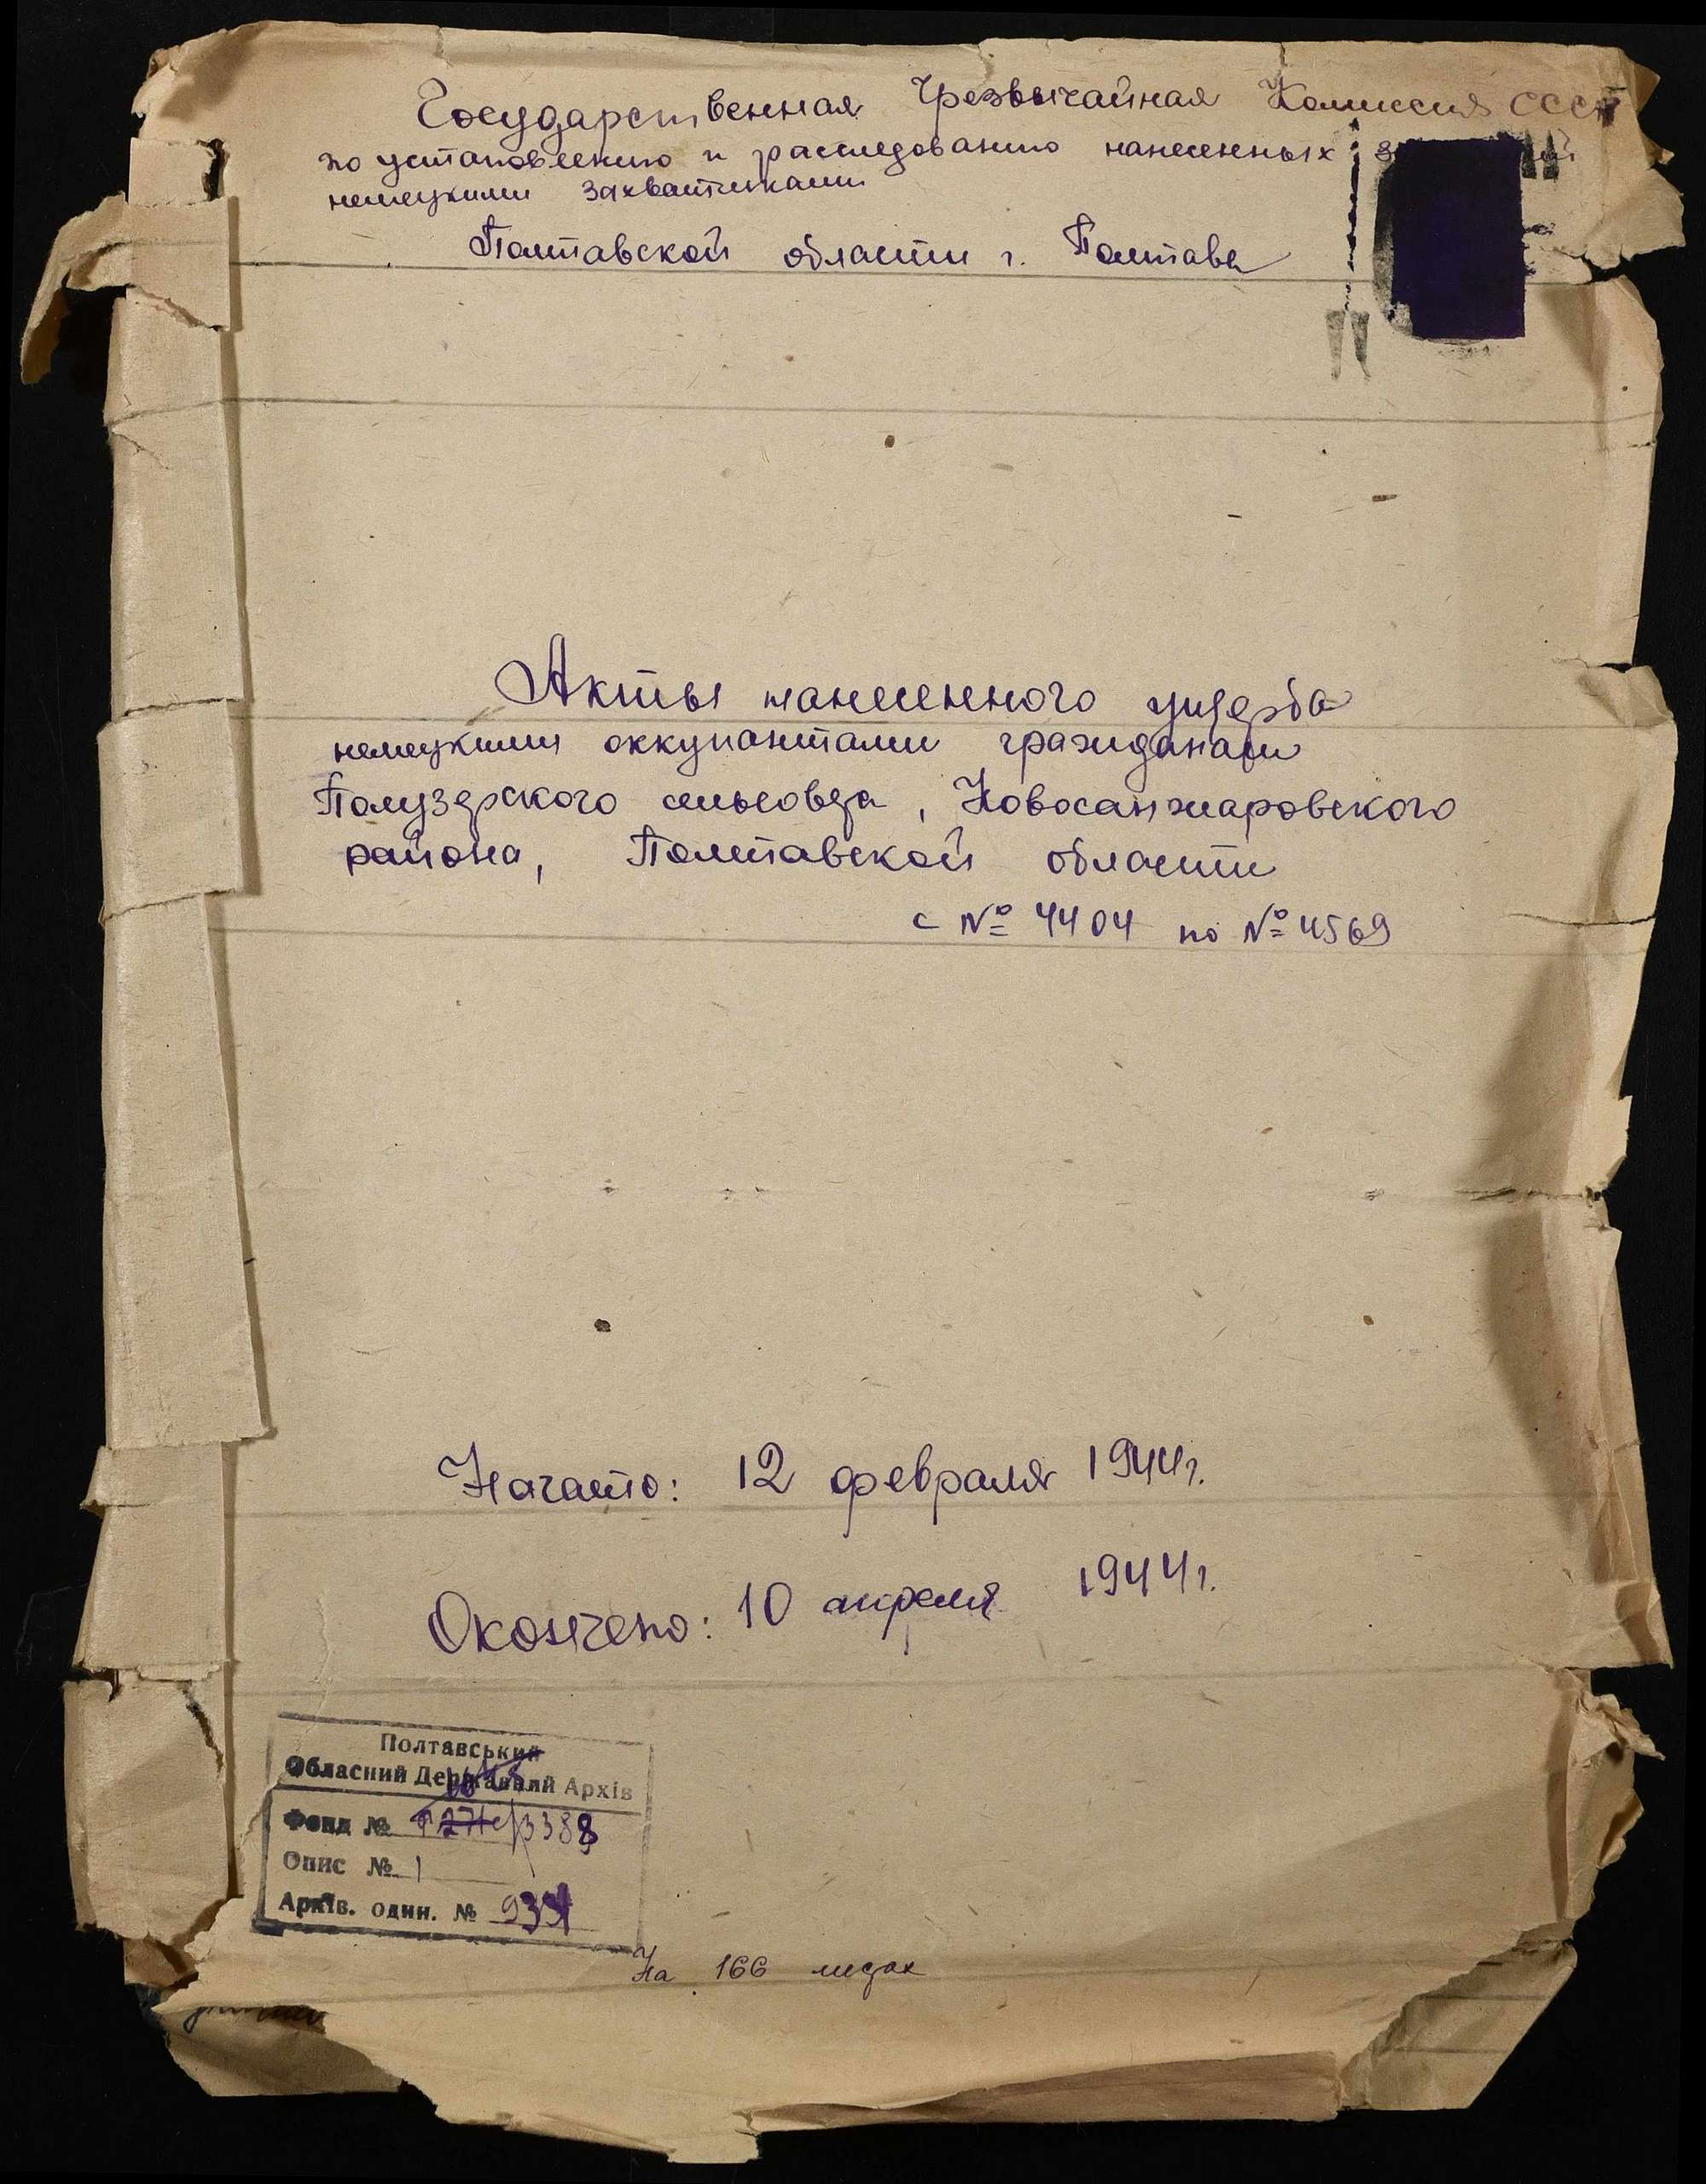 Государственная Чрезвычайная Комиссия СССР
по установлению и расследованию нанесенных
немецкими захватчиками
Полтавской области г. Полтава
Акты нанесенного ущерба
немецкими оккупантами гражданам
Полузерского сельсовета, Новосанжаровского
района, Полтавской области
с № 4404 по № 4569
Начато: 12 февраля 1944г.
Окончено: 10 апреля 1944г.
Полтавський
Обласний Державний Архів
Фонд № 3388
Опис № 1
Архів. один. №
На 166 лисах